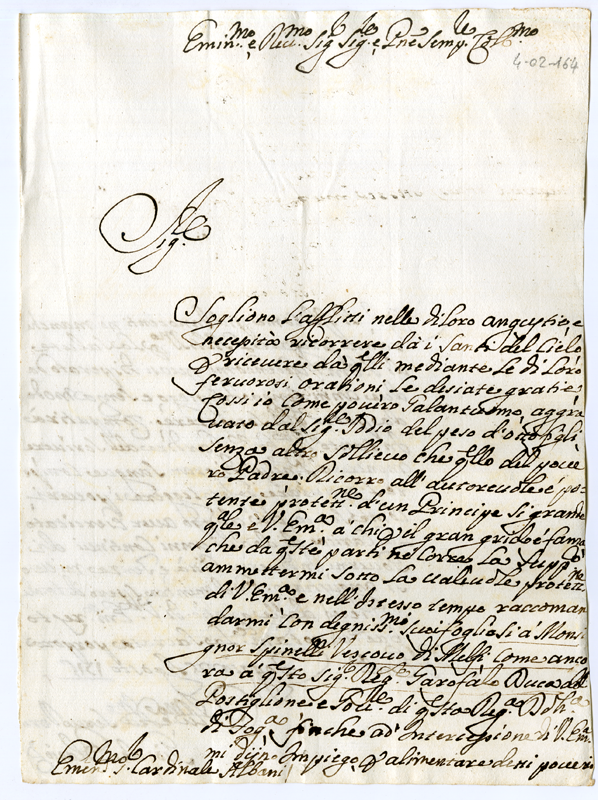 Emin.mo e Re.mo Sig.r Sig.re e Pne Semp.le Col.mo
4-02-164
Sig.re
Sogliono l'afflitti nelle di loro angustie, e
necessità ricorrere dà i Santi del Cielo
e ricevere dà qlli mediante le di loro
feruorosi orationi le desiate gratie
Cossi io come povero Galantuomo, aggra
uato dal Sig.re Idio del peso d'otto figli
senza altro sollieuo che qllo del poue
ro Padre. Ricorro all'autoreuole é po-
tente protett.ne d'un Principe si grande
qle e V. Em.a à chi il gran grido é fama
che da qste parti ne corre la supp.co
ammettermi sotto la ualeuole protett.ne
di V. Em.a e nell'istesso tempo raccoman
darmi con degniss.mo suoi fogliosi à Monsi
gnor Spinelli Vescouo di Melfi come anco
ra à qsto Sig.r Reg.te Garofalo Duca
Postiglione e di qsta Reg.a Doh.a
di Fog.a finche ad' Intercessione di V. Em.a
mi dijno Impiego, d'alimentare detti poueri
Emin.mo S.r Cardinale Albani